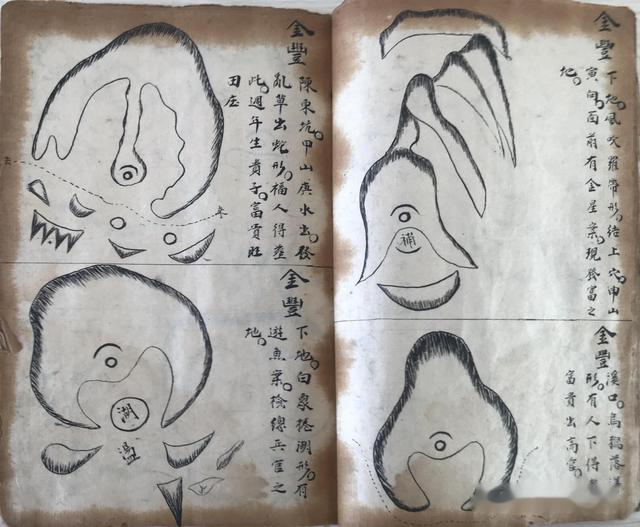 金豐
下地風吹羅帶形結上穴申山
寅向面前有金星案現發富之
地
補
金豐
溪口烏鴉落洋
形有人下得
富貴出高官
金豐
陳東坑甲山庚水出發
亂草出蛇形福人得葬
此週年生貴子富貴旺
田庄
去
來
金豐
下地白象捲湖形有
遊魚案檢總兵官之
地
湖